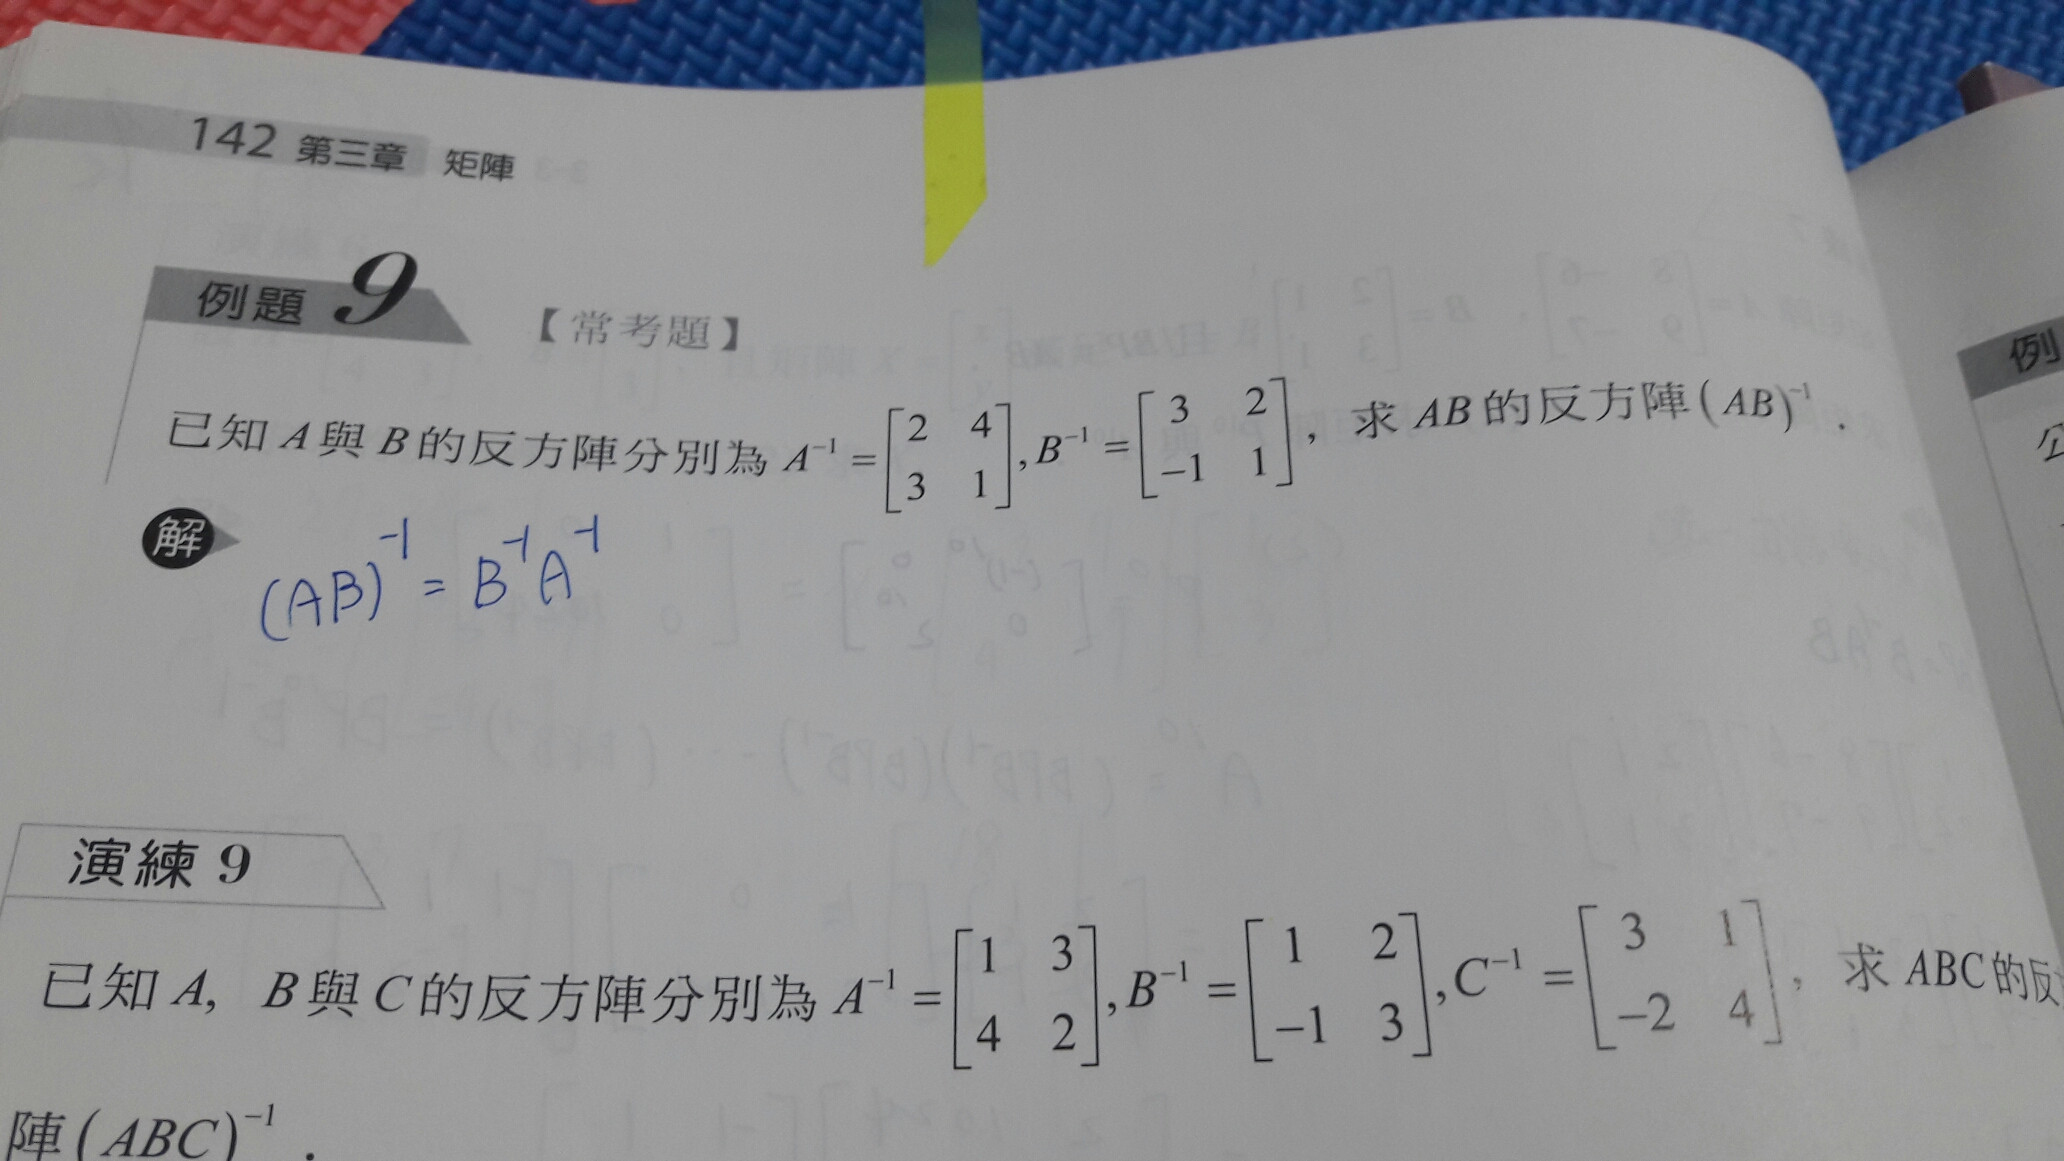 142 第三章 矩陣
例題 9 【常考題】
已知 A 與 B 的反方陣分別為 A⁻¹ = [2 4; 3 1], B⁻¹ = [3 2; −1 1], 求 AB 的反方陣 (AB)⁻¹.
解
(AB)⁻¹ = B⁻¹A⁻¹
演練 9
已知 A, B 與 C 的反方陣分別為 A⁻¹ = [1 3; 4 2], B⁻¹ = [1 2; −1 3], C⁻¹ = [3 1; −2 4], 求 ABC 的反
陣 (ABC)⁻¹.
例
公